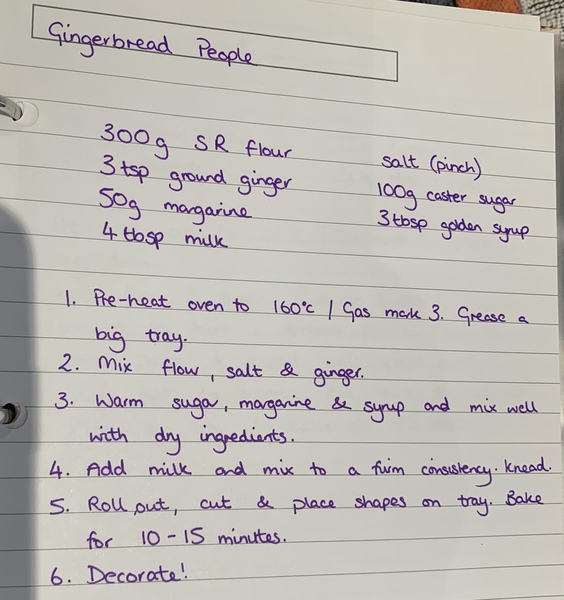 Gingerbread People
300g SR flour
3 tsp ground ginger
50g margarine
4 tbsp milk
salt (pinch)
100g caster sugar
3 tbsp golden syrup
1. Pre-heat oven to 160°c / Gas mark 3. Grease a
big tray.
2. Mix flow, salt & ginger.
3. Warm sugar, margarine & syrup and mix well
with dry ingredients.
4. Add milk and mix to a firm consistency. Knead.
5. Roll out, cut & place shapes on tray. Bake
for 10-15 minutes.
6. Decorate!